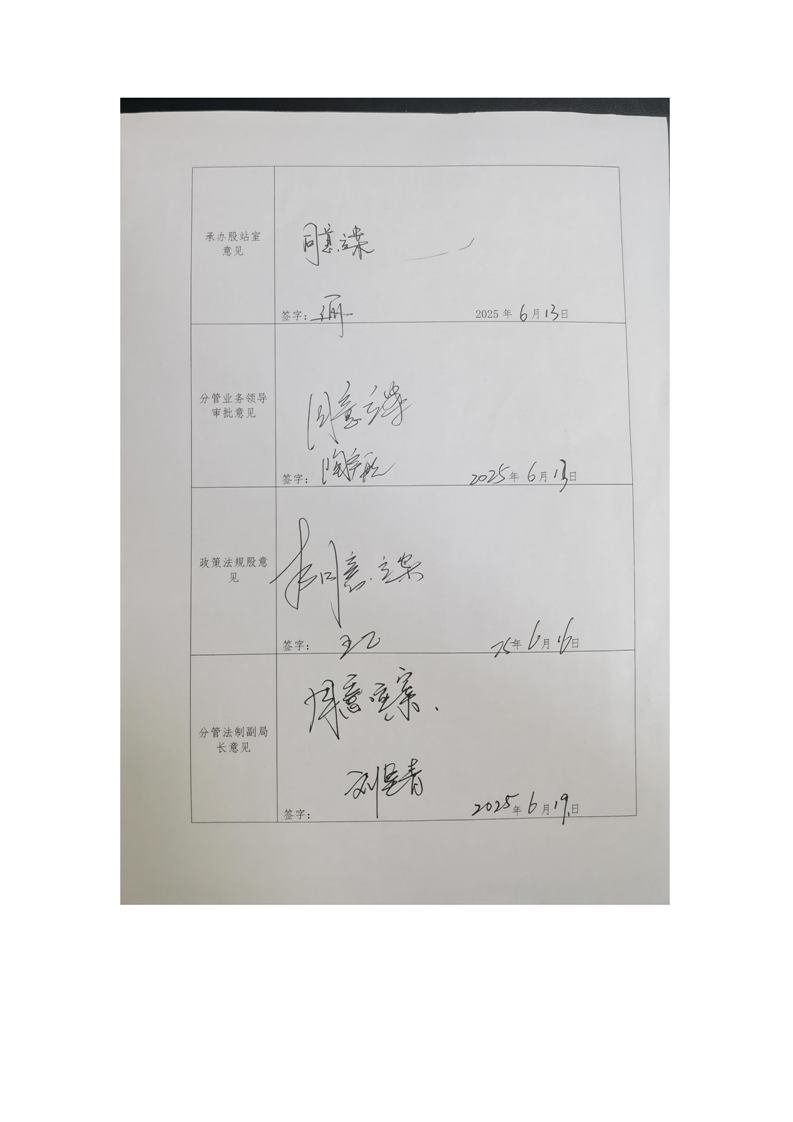 承办股站室
意见
同意立案
签字:
2025 年 6 月 13 日
分管业务领导
审批意见
同意立案
签字:
2025 年 6 月 13 日
政策法规股意
见
同意立案
签字:
25 年 6 月 16 日
分管法制副局
长意见
同意立案.
签字:
2025 年 6 月 19 日